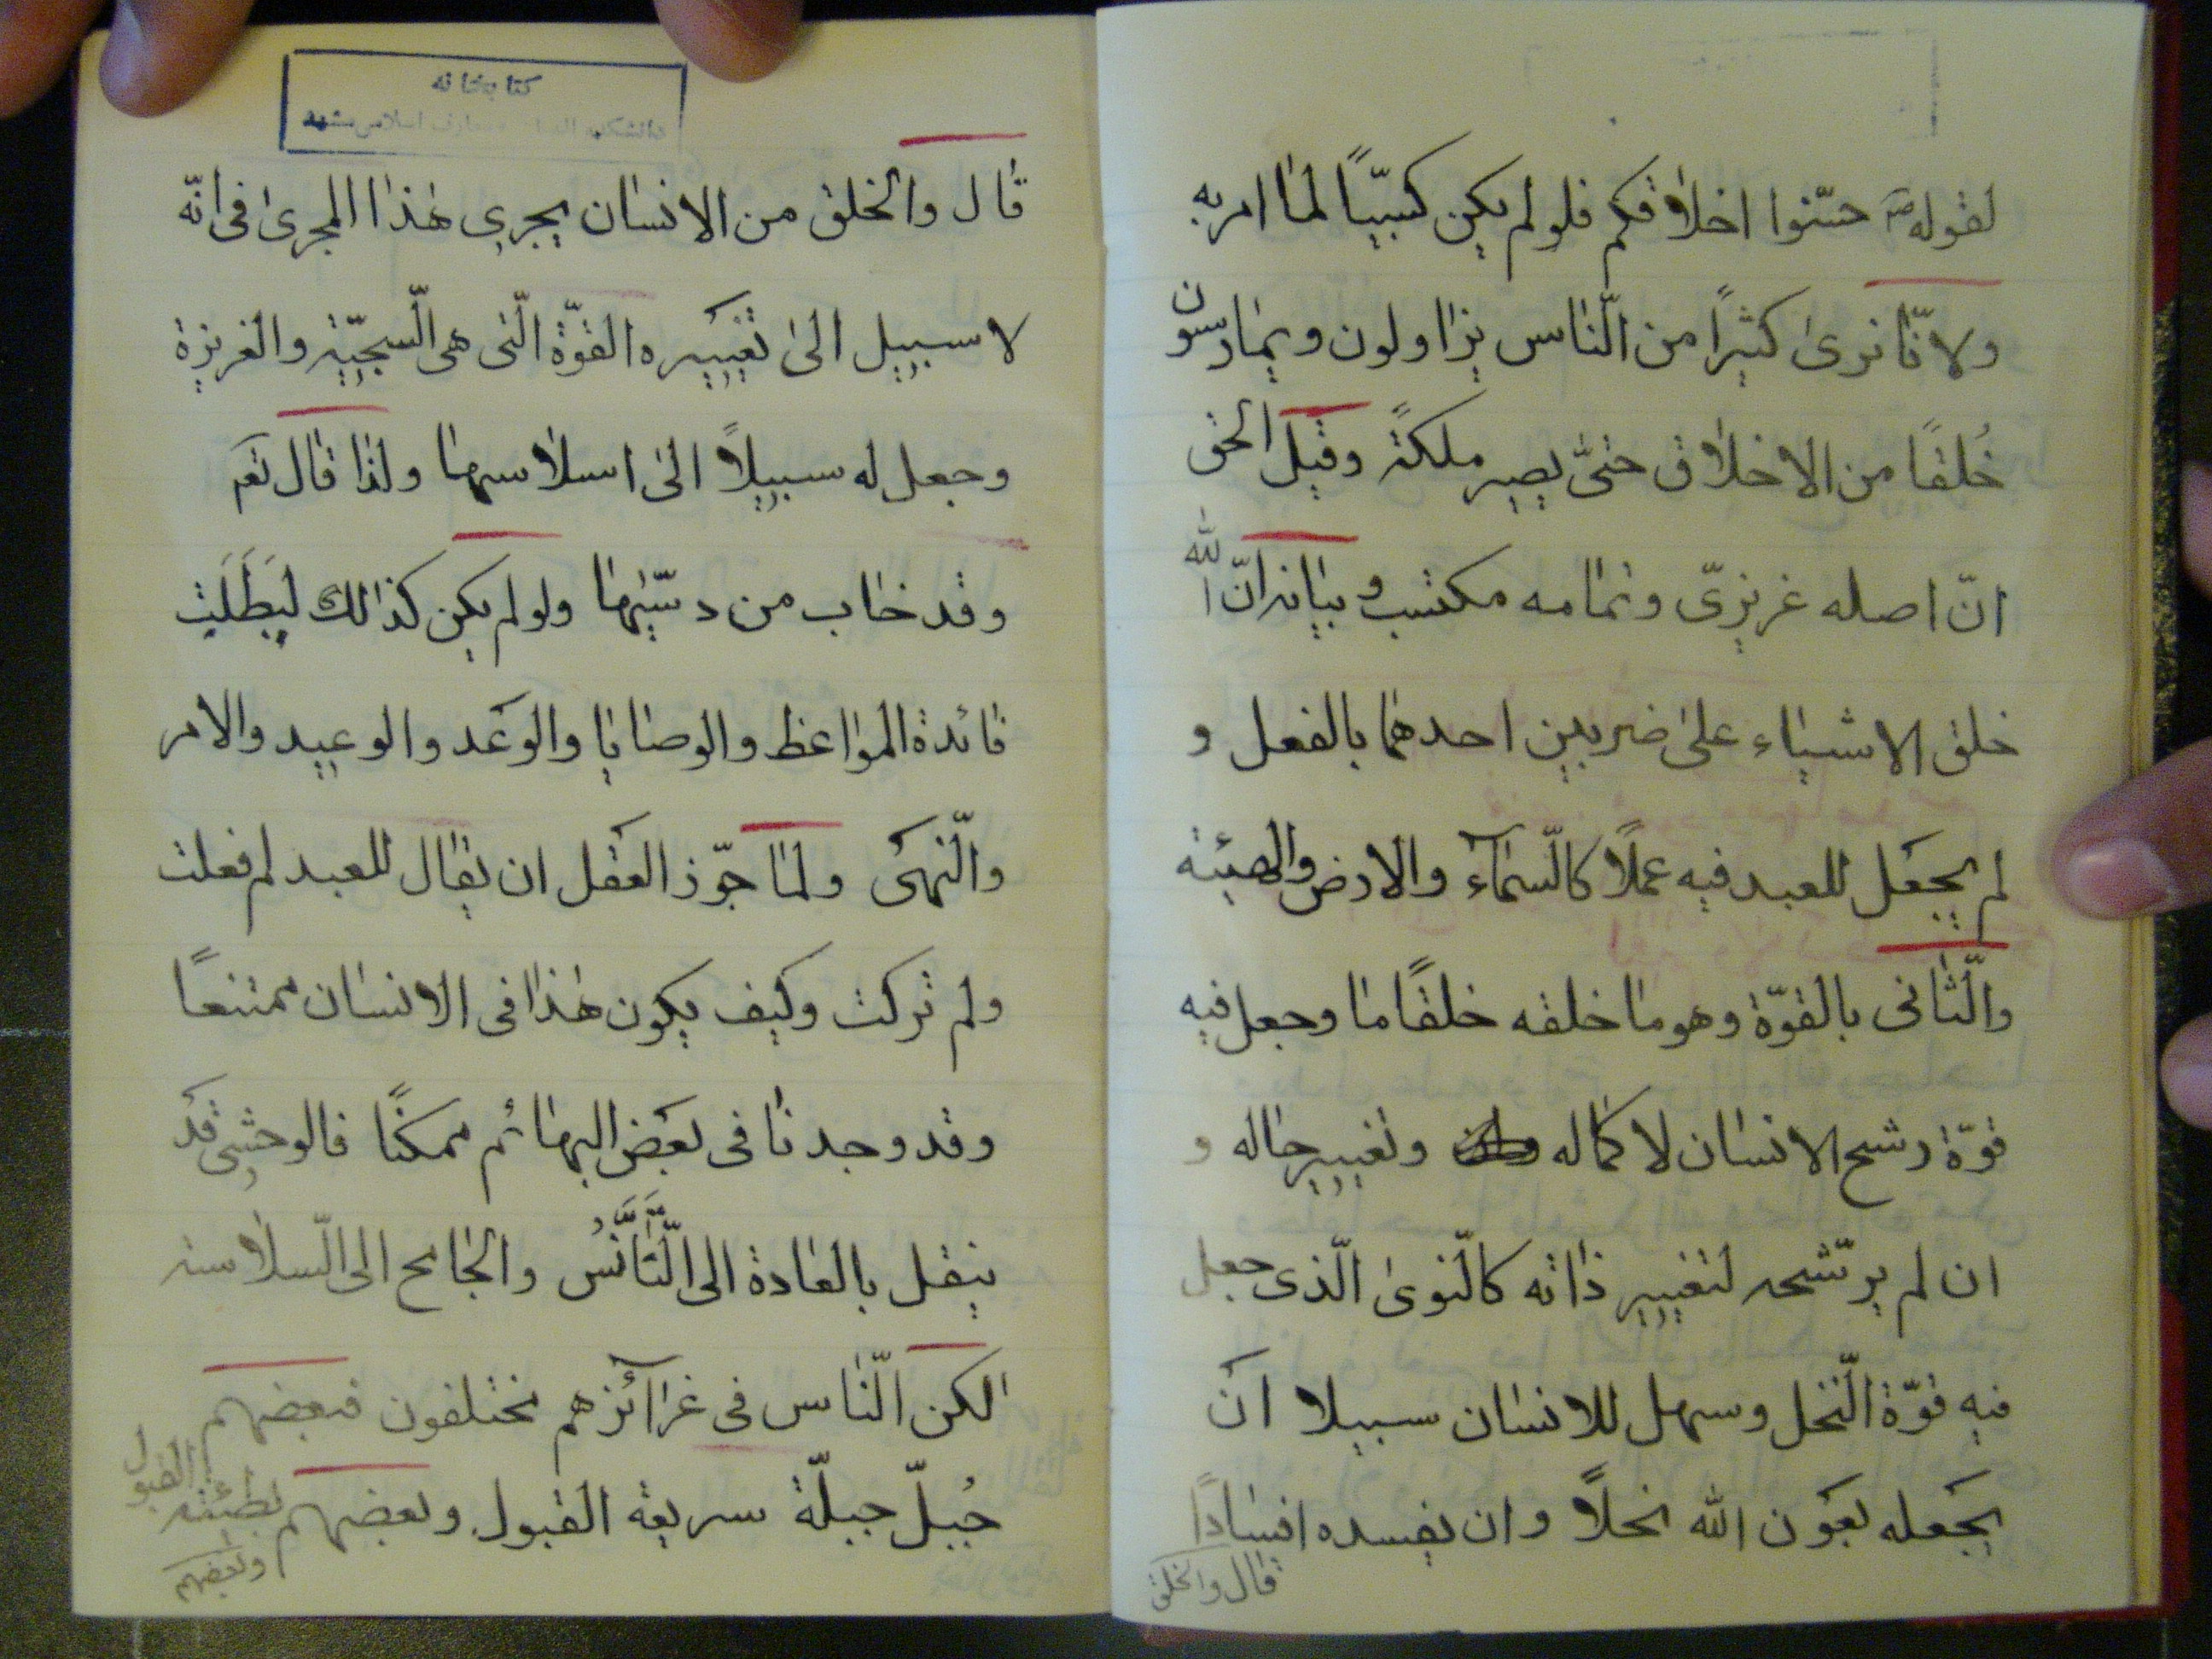 لقوله ص حسّنوا اخلاقكم فلو لم يكن كسبيّاً لما امر به
ولانّا نرى كثيراً من الّناس يزاولون ويمارسون
خُلقاً من الاخلاق حتىّ يصير ملكة وقيل الحق
انّ اصله غريزىّ وتمامه مكتسب و بيانه انّ الله
خلق الاشياء على ضربين احدهما بالفعل و
لم يجعل للعبد فيه عملاً كالّسمآء والارض والهيئة
والّثانى بالقوّة وهو ما خلقه خلقاً ما وجعل فيه
قوّة رشح الانسان لاكماله وتغيير حاله و
ان لم يرّشحه لتغيير ذاته كالّنوى الّذى جعل
فيه قوّة الّنخل وسهل للانسان سبيلا ان
يجعله بعون الله نخلاً وان يفسده افساداً
قال والخلق
كتابخانه
دانشكده معارف اسلامى مشهد
قال والخلق من الانسان يجرى هذا المجرى فى انّه
لا سبيل الى تغييره القوّة الّتى هى الّسجيّة والغريزة
وجعل له سبيلاً الى اسلاسها ولذا قال تعم
وقد خاب من دسّيها ولو لم يكن كذالك لبطَلَت
فائدة المواعظ والوصايا والوعد والوعيد والامر
والّنهى ولما جوّز العقل ان يقال للعبد لم فعلت
ولم تركت وكيف يكون هذا فى الانسان ممتنعاً
وقد وجدنا فى بعض البهائم ممكناً فالوحشى قد
ينقل بالعادة الى الّتَأَنُّس والجامح الى الّسلاسة
لكن الّناس فى غرآئزهم مختلفون فبعضهم
جُبلّ جبلّة سريعة القبول وبعضهم بطيئة القبول
وبعضهم